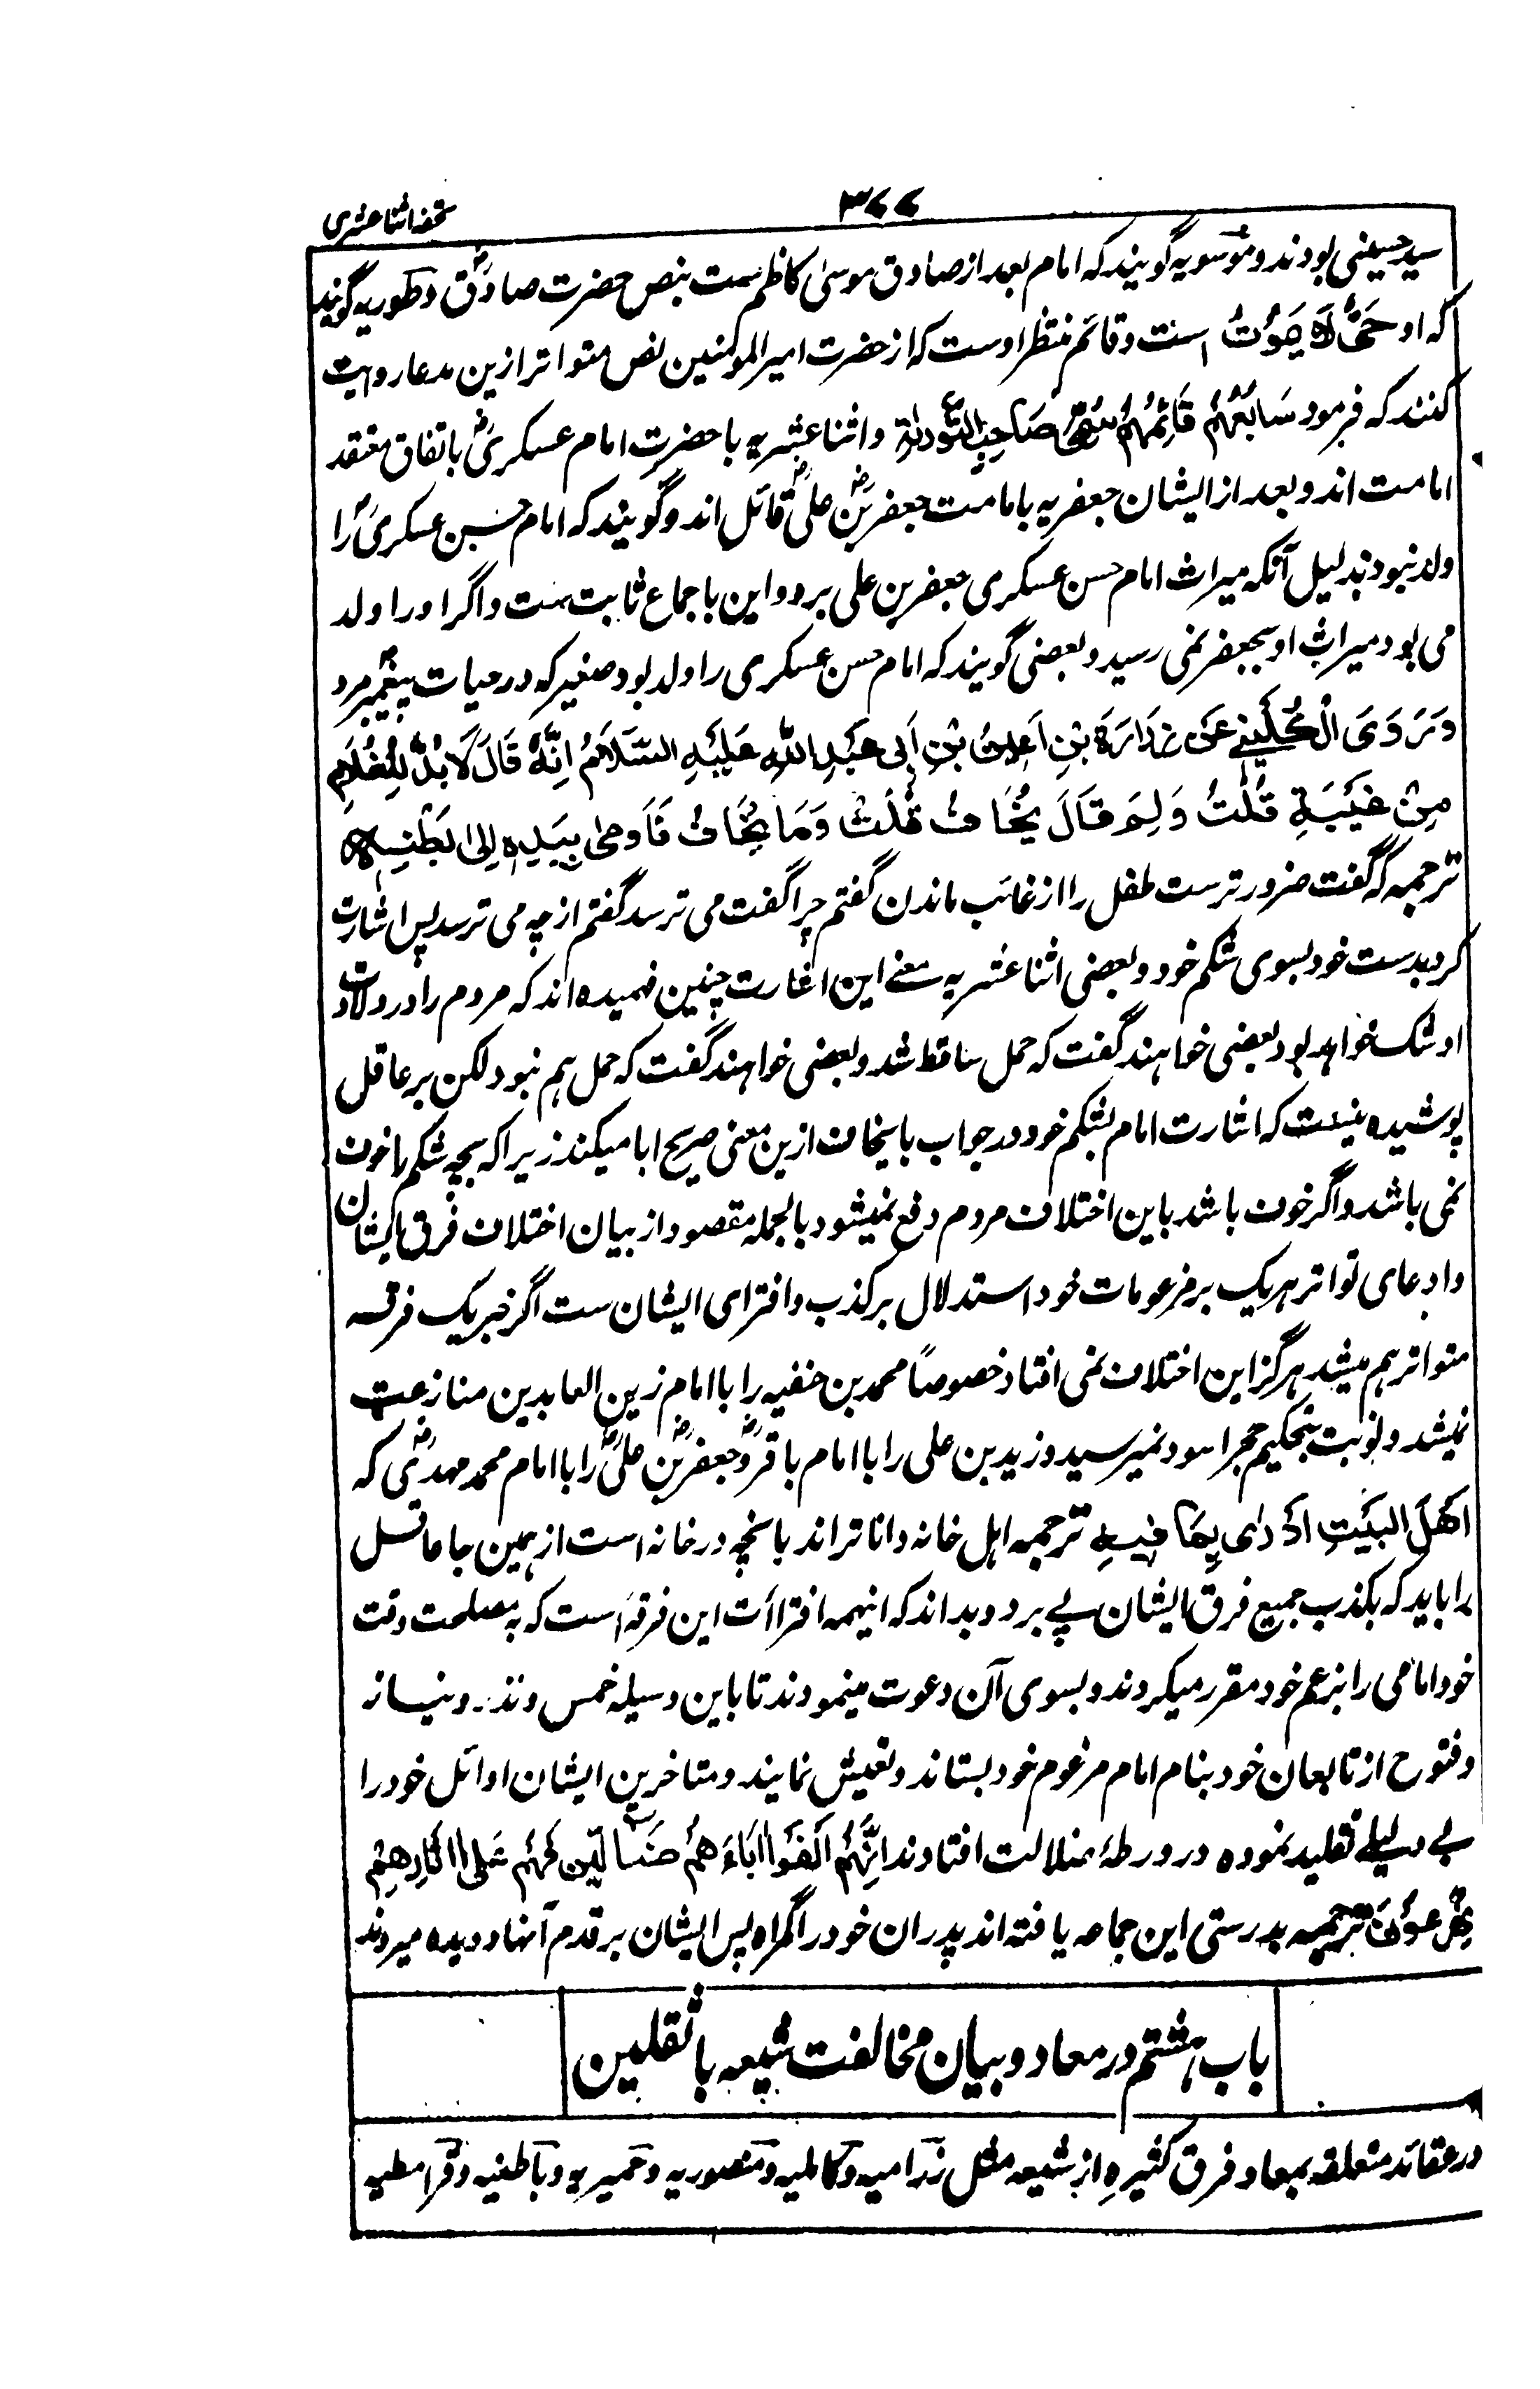 ۳۷۷
تحفه اثنا عشری
سید حسینی بودند و موسویه گویند که امام بعد از صادق موسیٰ کاظم ست بنص حضرت صادق و مطوریه گویند
که او حَیٌّ لَا یَمُوتُ است و قائم منتظر اوست که از حضرت امیر المومنین نص متواتر ازین مدعا روایت
کنند که فرمود سَابِعُهُمْ قَائِمُهُمْ سَمِیُّ صَاحِبِ التَّوْرَاةِ و اثنا عشریه با حضرت امام عسکری باتفاق معتقد
امامت اند و بعد از ایشان جعفریه بامامت جعفر بن علی قائل اند و گویند که امام حسن عسکری را
ولد نبود بدلیل آنکه میراث امام حسن عسکری جعفر بن علی برد و این باجماع ثابت ست و اگر او را ولد
می بود میراث او بجعفر نمی رسید و بعضی گویند که امام حسن عسکری را ولد بود صغیر که در حیات پیغمبر مرد
وَ رَوَی الْکُلَیْنِی عَنْ زُرَارَةَ بْنِ اَعْیَنَ بْنِ اَبِی عَبْدِ اللّٰهِ عَلَیْهِ السَّلَامُ اِنَّهُ قَالَ لَا بُدَّ لِلْغُلَامِ
مِنْ غَیْبَةٍ قُلْتُ وَلِمَ قَالَ یَخَافُ قُلْتُ وَمَا یَخَافُ فَاَوْمٰی بِیَدِهِ اِلٰی بَطْنِهِ
ترجمه که گفت ضرور ترست طفل را از غائب ماندن گفتم چرا گفت می ترسد گفتم از چه می ترسد پس اشارت
کرد بدست خود بسوی شکم خود و بعضی اثنا عشریه معنے این اشارت چنین فهمیده اند که مردم را در ولادت
او شک خواهد بود بعضی خواهند گفت که حمل ساقط شد و بعضی خواهند گفت که حمل هم نبود لکن بر عاقل
پوشیده نیست که اشارت امام بشکم خود در جواب ما یخاف ازین معنی صریح ابا میکند زیرا که بچه شکم را خوف
نمی باشد و اگر خوف باشد باین اختلاف مردم دفع نمیشود بالجمله مقصود از بیان اختلاف فرق ایشان
و ادعای تواتر هریک بر مزعومات خود استدلال بر کذب و افترای ایشان ست اگر خبر یک فرقه
متواتر هم میشد هرگز این اختلاف نمی افتاد خصوصاً محمد بن حنفیه را با امام زین العابدین منازعت
نمیشد و نوبت بتحکیم حجر اسود نمیرسید و زید بن علی را با امام باقر و جعفر بن علی را با امام محمد مهدی که
اَهْلُ البَیْتِ اَدْرٰی بِمَا فِیهِ ترجمه اهل خانه داناتر اند بانچه در خانه است از همین جا عاقل
را باید که بکذب جمیع فرق ایشان پے برد و بداند که اینهمه افترا آت این فرقه است که به مصلحت وقت
خود امامی را بزعم خود مقرر میکردند و بسوی آن دعوت مینمودند تا باین وسیله خمس و نذر و نیاز
و فتوح از تابعان خود بنام امام مزعوم خود بستانند و تعیش نمایند و متاخرین ایشان اوائل خود را
بے دلیلے تقلید نموده در ورطۀ ضلالت افتادند اِنَّهُمْ اَلْفَوْا اٰبَاءَهُمْ ضَالِّیْنَ فَهُمْ عَلٰی اٰثَارِهِمْ
یُهْرَعُوْنَ ترجمه بدرستی این جماعه یافته اند پدران خود را گمراه پس ایشان بر قدم آنها دویده میروند
باب هشتم در معاد و بیان مخالفت شیعه با ثقلین
در عقائد متعلقه بمعاد فرق کثیره از شیعه مثل زرامیه و کاملیه و منصوریه و حمیریه و باطنیه و قرامطیه